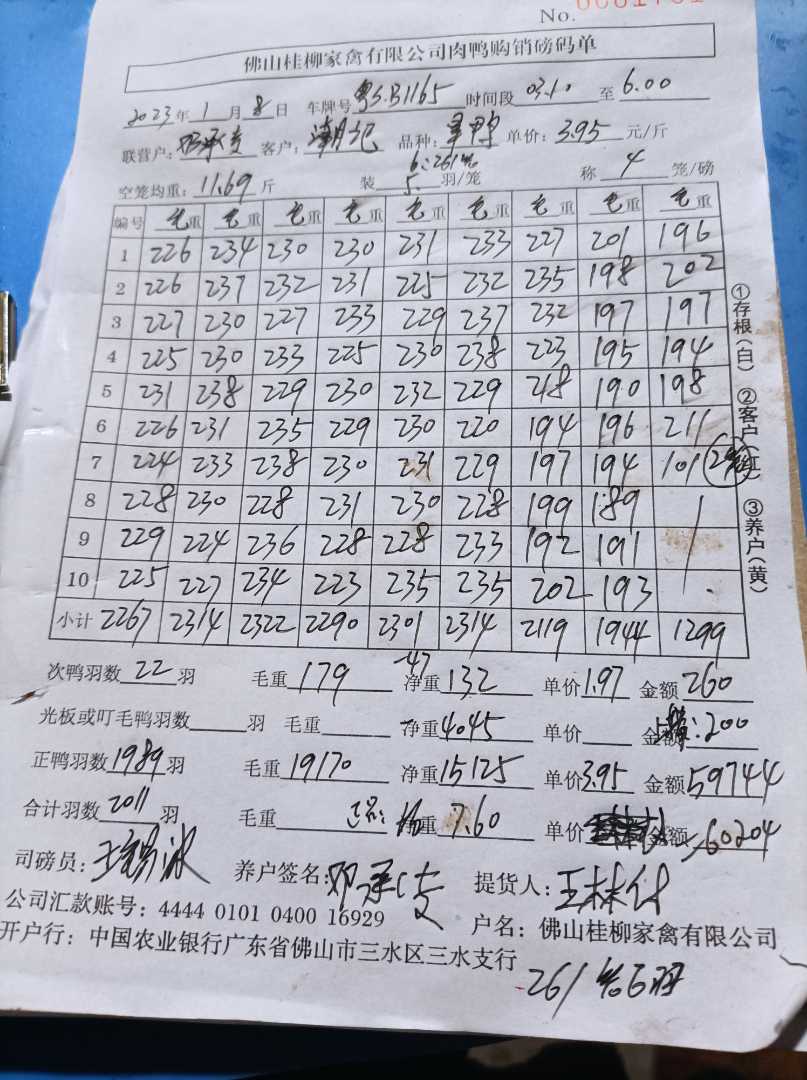 No.
佛山桂柳家禽有限公司肉鸭购销磅码单
2023年1月8日 车牌号粤S.B1165时间段03.10至6.00
联营户:邓承支 客户:潮记 品种: 单价:3.95元/斤
6:261笼
空笼均重:11.69斤 装5羽/笼 称4笼/磅
编号 毛重 毛重 毛重 毛重 毛重 毛重 毛重 毛重 毛重
1 226 234 230 230 231 233 227 201 196
2 226 237 232 231 225 232 235 198 202
3 227 230 227 233 229 237 232 197 197
4 225 230 233 225 230 238 223 195 194
5 231 238 229 230 232 229 218 190 198
6 226 231 235 229 230 220 194 196 211
7 224 233 238 230 231 229 197 194 101 2笼
8 228 230 228 231 230 228 199 189
9 229 224 236 228 228 233 192 191
10 225 227 234 223 235 235 202 193
小计 2267 2314 2322 2290 2301 2314 2119 1944 1299
①存根(白) ②客户(红) ③养户(黄)
次鸭羽数22羽 毛重179 -47 净重132 单价1.97 金额260
光板或叮毛鸭羽数 羽 毛重 净重4045 单价 金额:200
正鸭羽数1989羽 毛重19170 净重15125 单价3.95 金额59744
合计羽数2011羽 毛重 净重7.60 单价 金额60204
司磅员: 养户签名:邓承支 提货人:王林
公司汇款账号:4444 0101 0400 16929 户名:佛山桂柳家禽有限公司
开户行:中国农业银行广东省佛山市三水区三水支行
261笼6羽